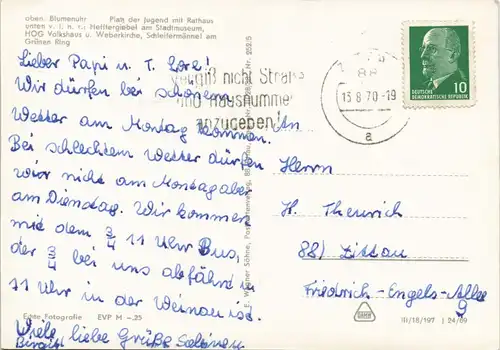 oben: Blumenuhr Platz der Jugend mit Rathaus
unten v. l. n. r.: Heffterigiebel am Stadtmuseum,
HOG Volkshaus u. Weberkirche, Schleifermännel am
Grünen Ring
Lieber Papi u. T. Lore!
Wir dürfen bei schönem
Wetter am Montag kommen.
Bei schlechtem Wetter dürfen
wir nicht am Montag aber
am Dienstag. Wir kommen
mit dem ¾ 11 Uhr Bus,
der ¾ bei uns abfährt u.
11 Uhr in der ist.
Viele liebe Grüße
Birgit
Echte Fotografie EVP M -.25
Vergiß nicht Straße
und Hausnummer
anzugeben!
88
13.8.70-19
a
DEUTSCHE
DEMOKRATISCHE REPUBLIK
10
An
Herrn
H. Theurich
88) Zittau
Friedrich-Engels-Allee
9
III/18/197 I 24/69